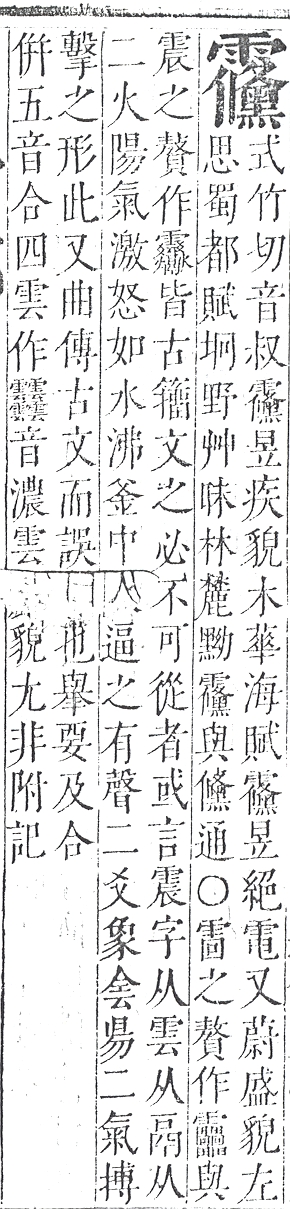 𩆍式竹切音叔𩆍昱疾貌木華海賦𩆍昱絕電又蔚盛貌左
思蜀都賦坰野艸昧林麓黝𩆍與儵通○䨓之贅作靁與
震之贅作𩇒皆古籀文之必不可從者或言震字从雲从鬲从
二火陽氣激怒如水沸釜中人逼之有聲二爻象侌昜二氣搏
擊之形此又曲傳古文而誤也舉要及合
倂五音合四雲作𩇔音濃雲貌尤非附記